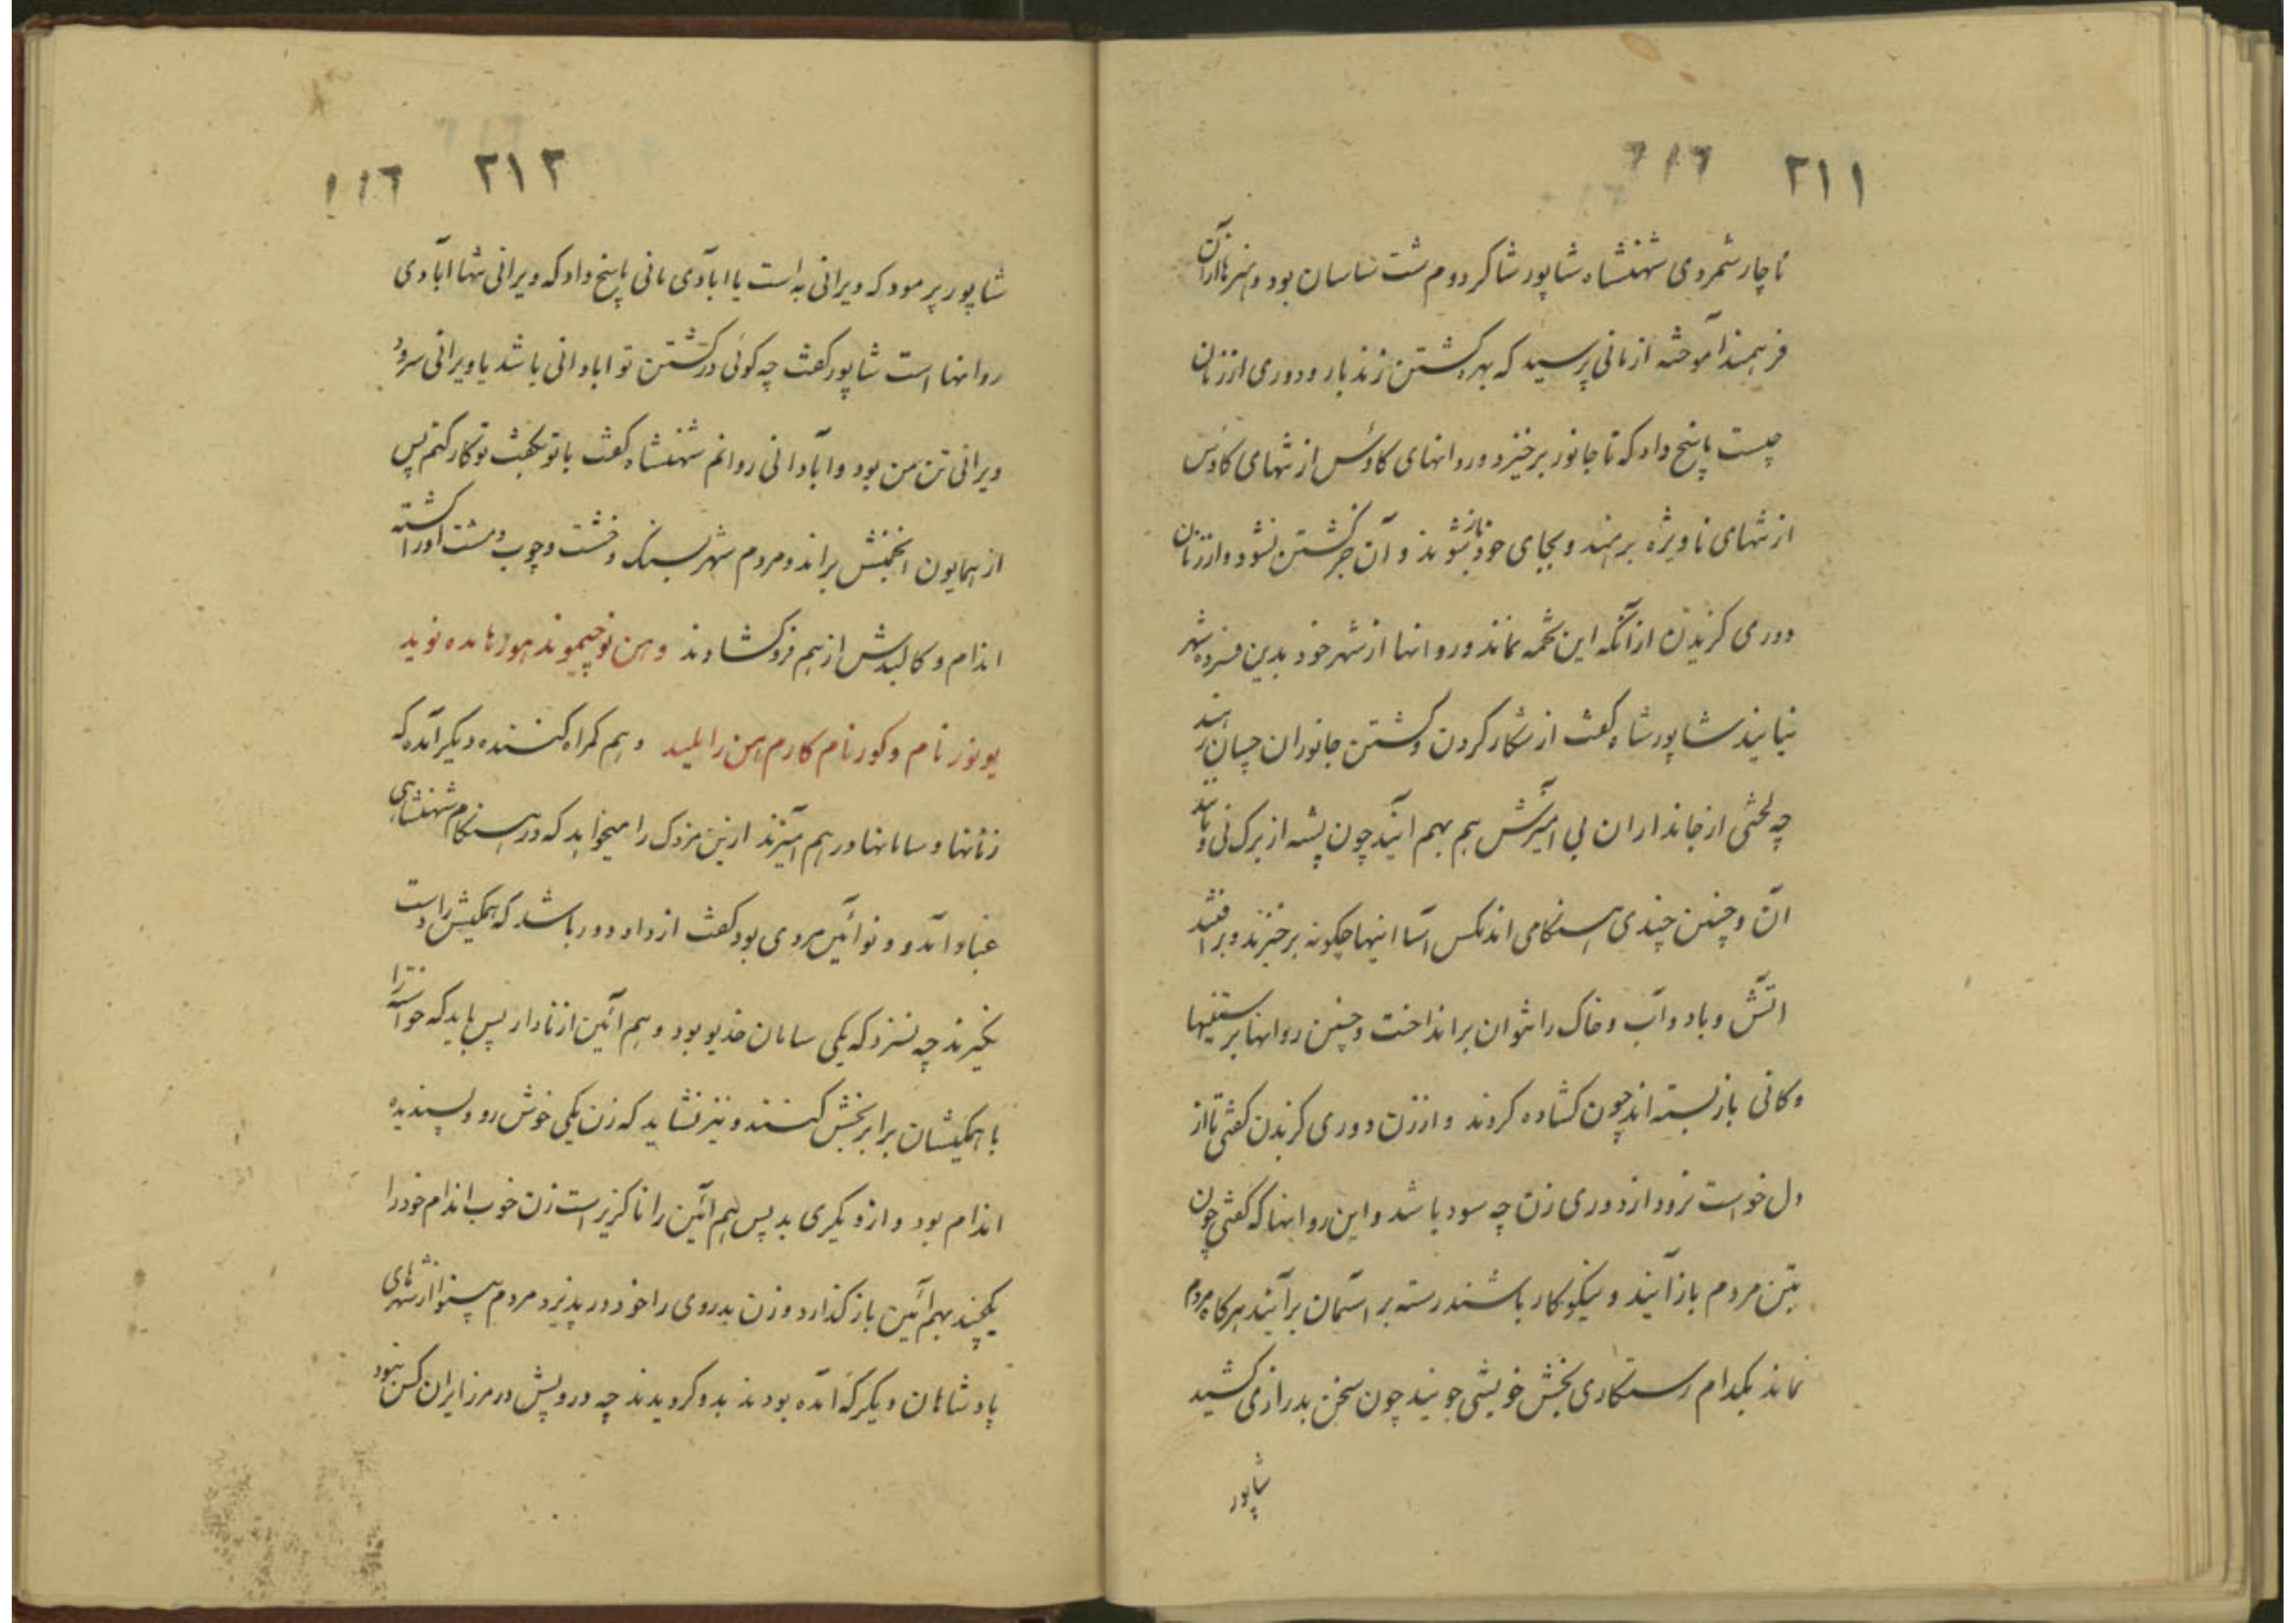 ۲۱۱
ناچار شمردی شهنشاه شاپور شاکردوم شت ساسان بود و هنرها ازان
فرهمند آموخته از مانی پرسید که بهره کشتن زندبار و دوری از زنان
چیست پاسخ داد که تا جانور برخیزد و روانهای کاوس از تنهای کاوس
از تنهای ناویژه برهند و بجای خود باز شوند و آن جز کشتن نشود و از زنان
دوری کزیدن از آنکه این تخمه نماند و روانها از شهر خود بدین فسرده شهر
نیایند شاپور شاه کفت از شکار کردن و کشتن جانوران چسان رهند
چه لختی از جانداران بی امیزش هم بهم ایند چون پشه از برک نی و مانند
آن و چنین چندی هنکامی اند مکس آسا اینها چکونه برخیزند و برافتند
اتش و باد و آب و خاک را نتوان برانداخت و چنین روانها برستنیها
و کانی باز بسته اند چون کشاده کردند و از زن دوری کزیدن کفتی تا از
دل خواست نرود از دوری زن چه سود باشد و این روانها که کفتی چون
بتن مردم باز آیند و نیکوکار باشند رسته بر آسمان برآیند هرکاه مردم
نماند بکدام رستکاری بخش خویشی جویند چون سخن بدرازی کشید
شاپور
۲۱۲
شاپور پرمود که ویرانی به است یا ابادی مانی پاسخ داد که ویرانی تنها ابادی
روانها است شاپور کفت چه کوئی در کشتن تو ابادانی باشد یا ویرانی سرود
ویرانی تن من بود و آبادانی روانم شهنشاه کفت با تو بکفت تو کار کنم پس
از همایون انجمنش براند و مردم شهر بسنک و خشت و چوب و مشت اورا کشته
اندام و کالبدش از هم فرو کشادند و هن نوخیموند هورهامده نوید
یونوزنام و کورنام کارم اهن را یلمید و هم کمراه کننده دیکر آمده که
زنانها و سامانها در هم آمیزند ازین مزدک را میخواهد که در هنکام شهنشاهی
غباد آمد و نوآئین مردی بود کفت از داد دور باشد که همکیش راست
نکیرند چه نسزد که یکی سامان خدیو بود و هم آئین از نادار پس باید که خواسته را
با همکیشان برابر بخش کنند و نیز نشاید که زن یکی خوش رو و پسندیده
اندام بود و از دیکری بد پس هم آئین را ناکزیر است زن خوب اندام خود را
یکچند بهم آئین بازکذارد و زن بدروی را خود در پذیرد مردم بینوا از شهرهای
پادشاهان دیکر که آمده بودند بدو کرویدند چه درویش در مرز ایران کس نبود